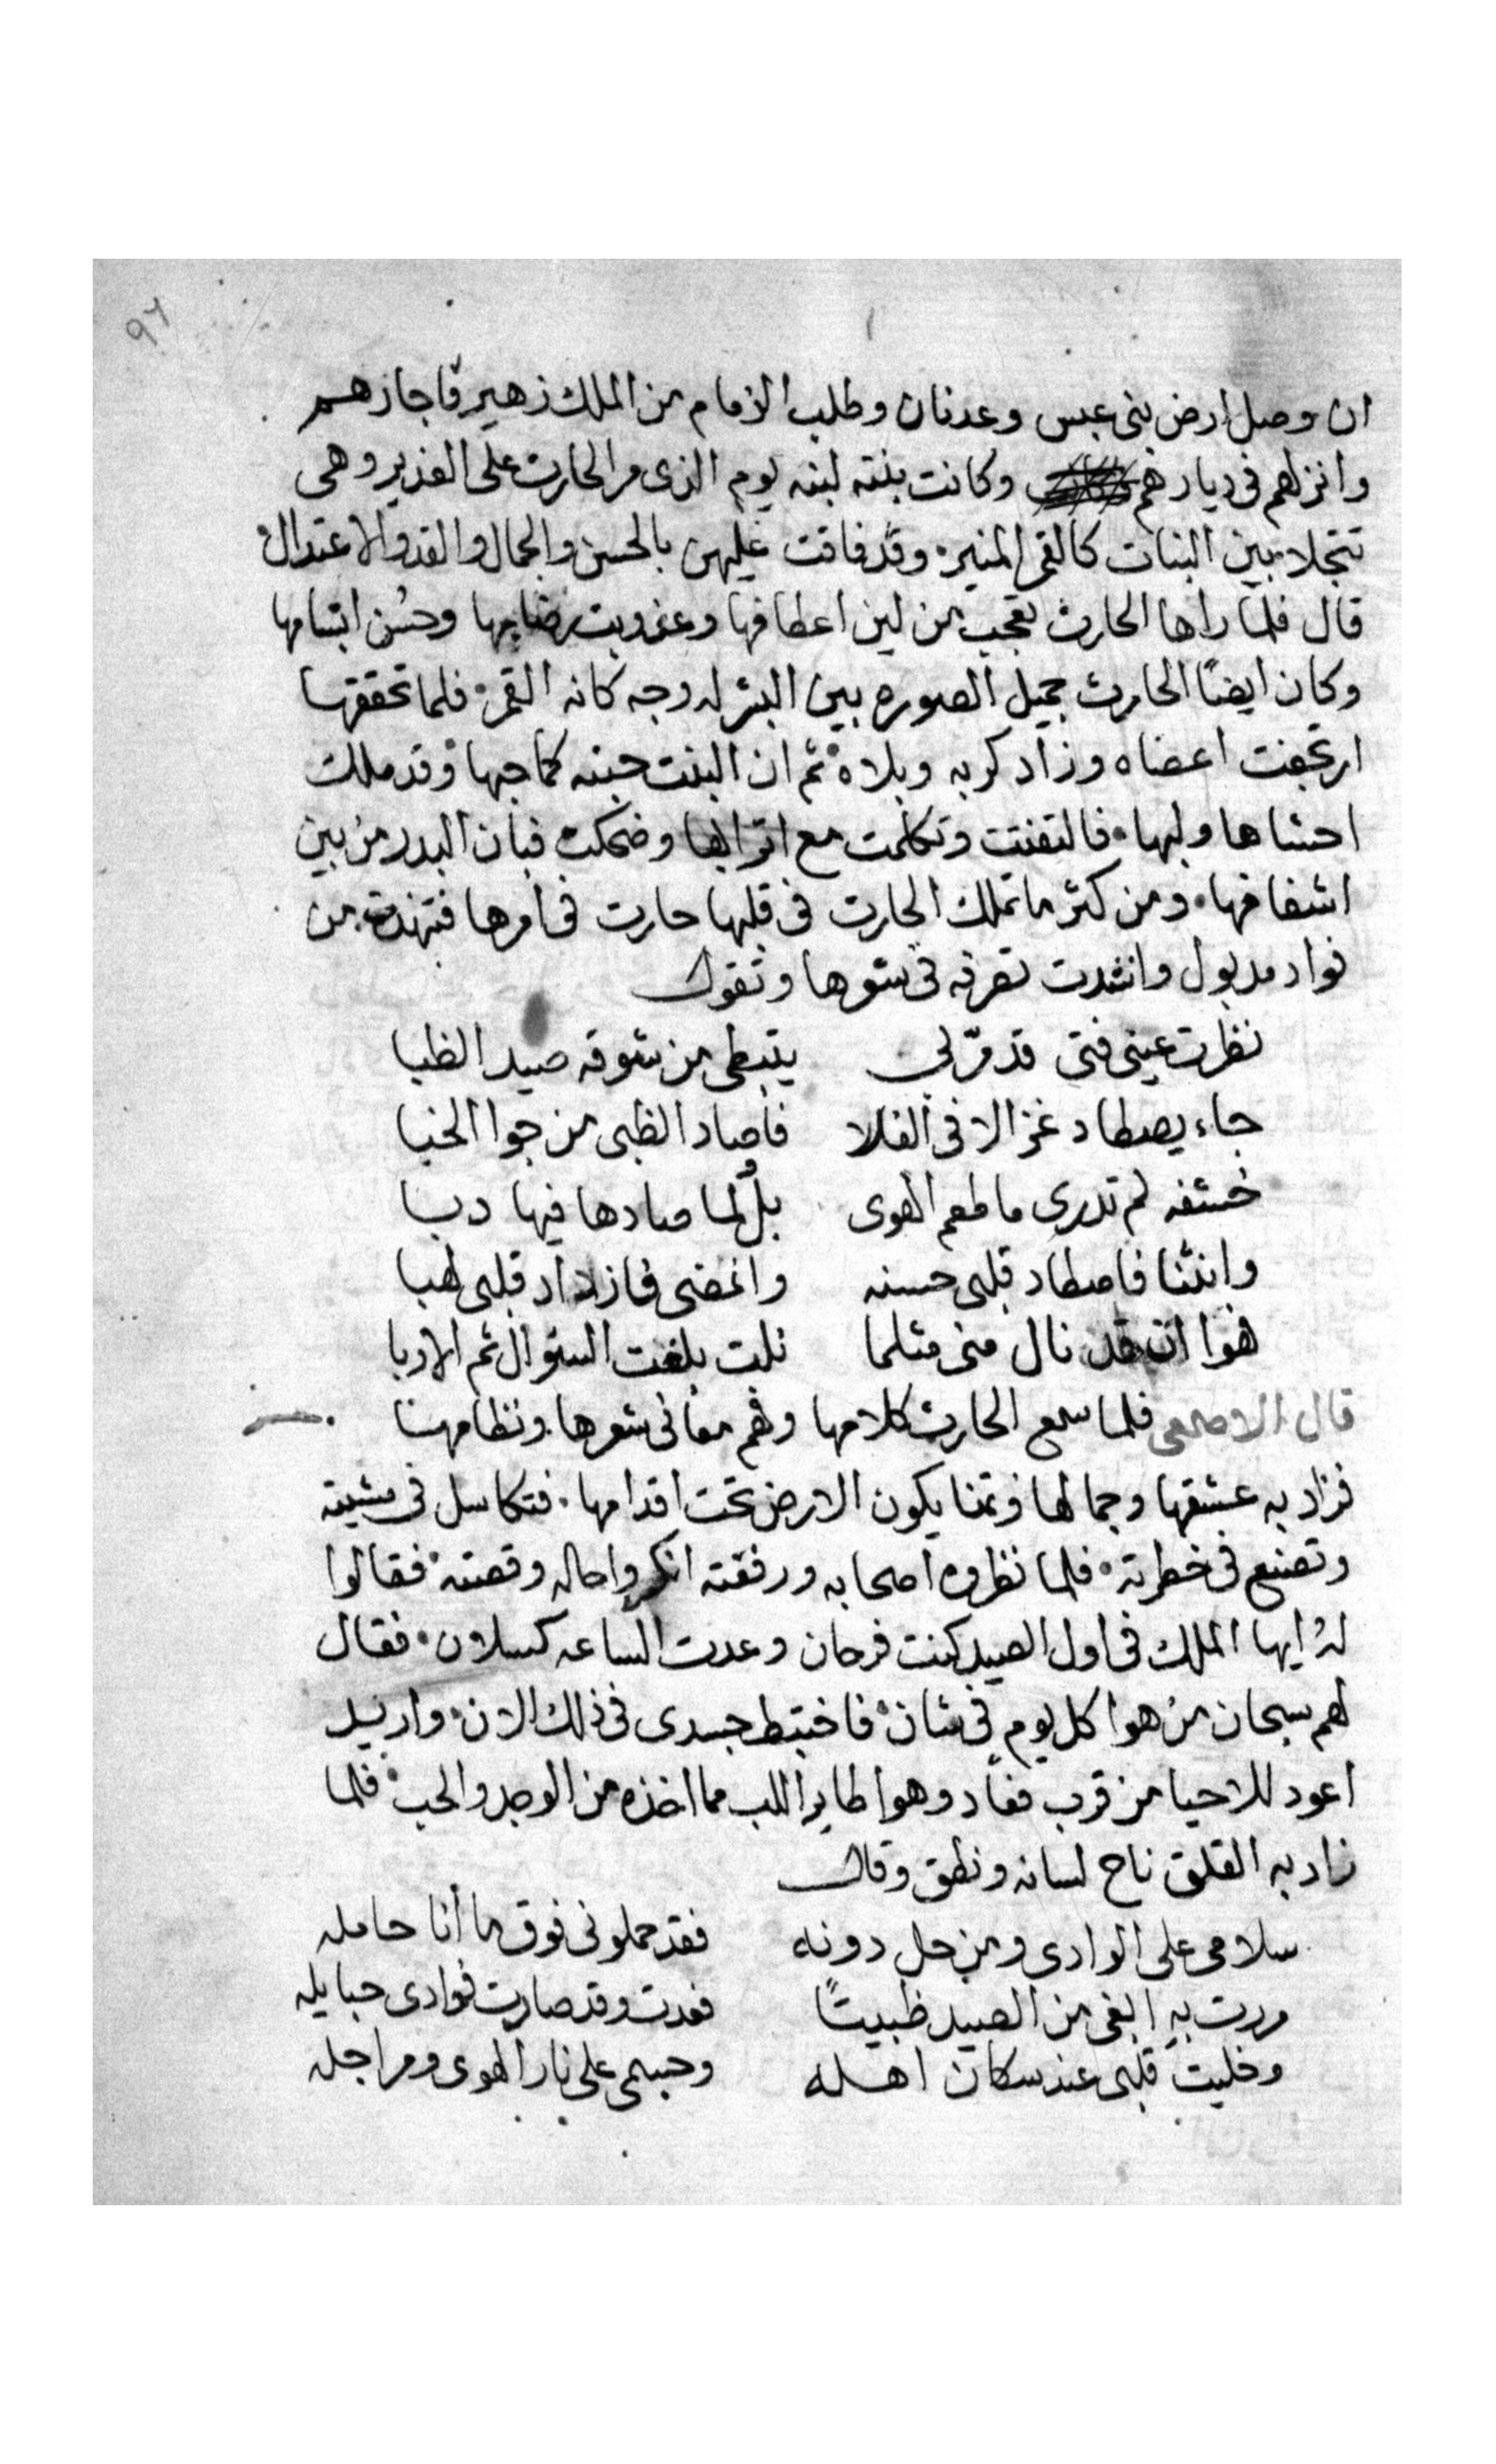 ٩٦
ان وصل ارض بنى عبس وعدنان وطلب الزمام من الملك زهير فاجازهم
وانزلهم فى ديارهم وكانت بنته لبنه يوم الذى مر الحارث على الغدير وهى
تتجلا بين البنات كالقمر المنير وقد فاقت عليهن بالحسن والجمال والقد والاعتدال
قال فلما راها الحارث تعجب من لين اعطافها وعذوبت رضابها وحسن ابتسامها
وكان ايضًا الحارث جميل الصوره بين البشر له وجه كانه القمر فلما تحققها
ارتجفت اعضاه وزاد كربه وبلاه ثم ان البنت حبته كما حبها وقد ملك
احشاها ولبها فالتفتت وتكلمت مع اترابها وضحكت فبان البدر من بين
اشفافها ومن كثر ما تملك الحارث فى قلبها حارت فى امرها فتنهدت من
فواد مدبول وانشدت تعرفه فى شعرها وتقول
نظرت عينى فتى قد مرّ لى يتبطى من شوقه صيد الظبا
جاء يصطاد غزالا فى الفلا فاصاد الظبى من جوا الخبا
خشفه لم تدرى ما طعم الهوى بل لما صادها فيها دبا
وانثنا فاصطاد قلبى حسنه وانمضى فازداد قلبى لهبا
هوا ان قد نال منى مثلما نلت بلغت السؤال ثم الاربا
قال الاصمعى فلما سمع الحارث كلامها وفهم معانى شعرها ونظامها
فزاد به عشقها وجمالها وتمنا يكون الارض تحت اقدامها فتكاسل فى مشيته
وتصنع فى خطرته فلما نظروه اصحابه ورفقته انكروا حاله وقصته فقالوا
له ايها الملك فى اول الصيد كنت فرحان وعدت الساعه كسلان فقال
لهم سبحان من هوا كل يوم فى شان فاختبط جسدى فى ذلك الان واريد
اعود للاحيا من قرب فعاد وهوا طاير اللب مما اخذه من الوجد والحب فلما
زاد به القلق ناح لسانه ونطق وقال
سلامى على الوادى ومن حل دونه فقد حملونى فوق ما أنا حامله
مررت به ابغى من الصيد ظبيتًا فعدت وقد صارت فوادى حبايله
وخليت قلبى عند سكان اهله وجسمى على نار الهوى ومراجله